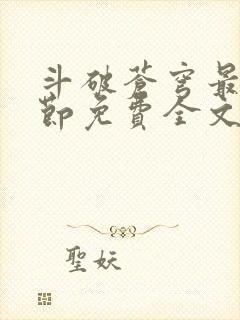 斗破蒼穹最
節免費全文
聖妖